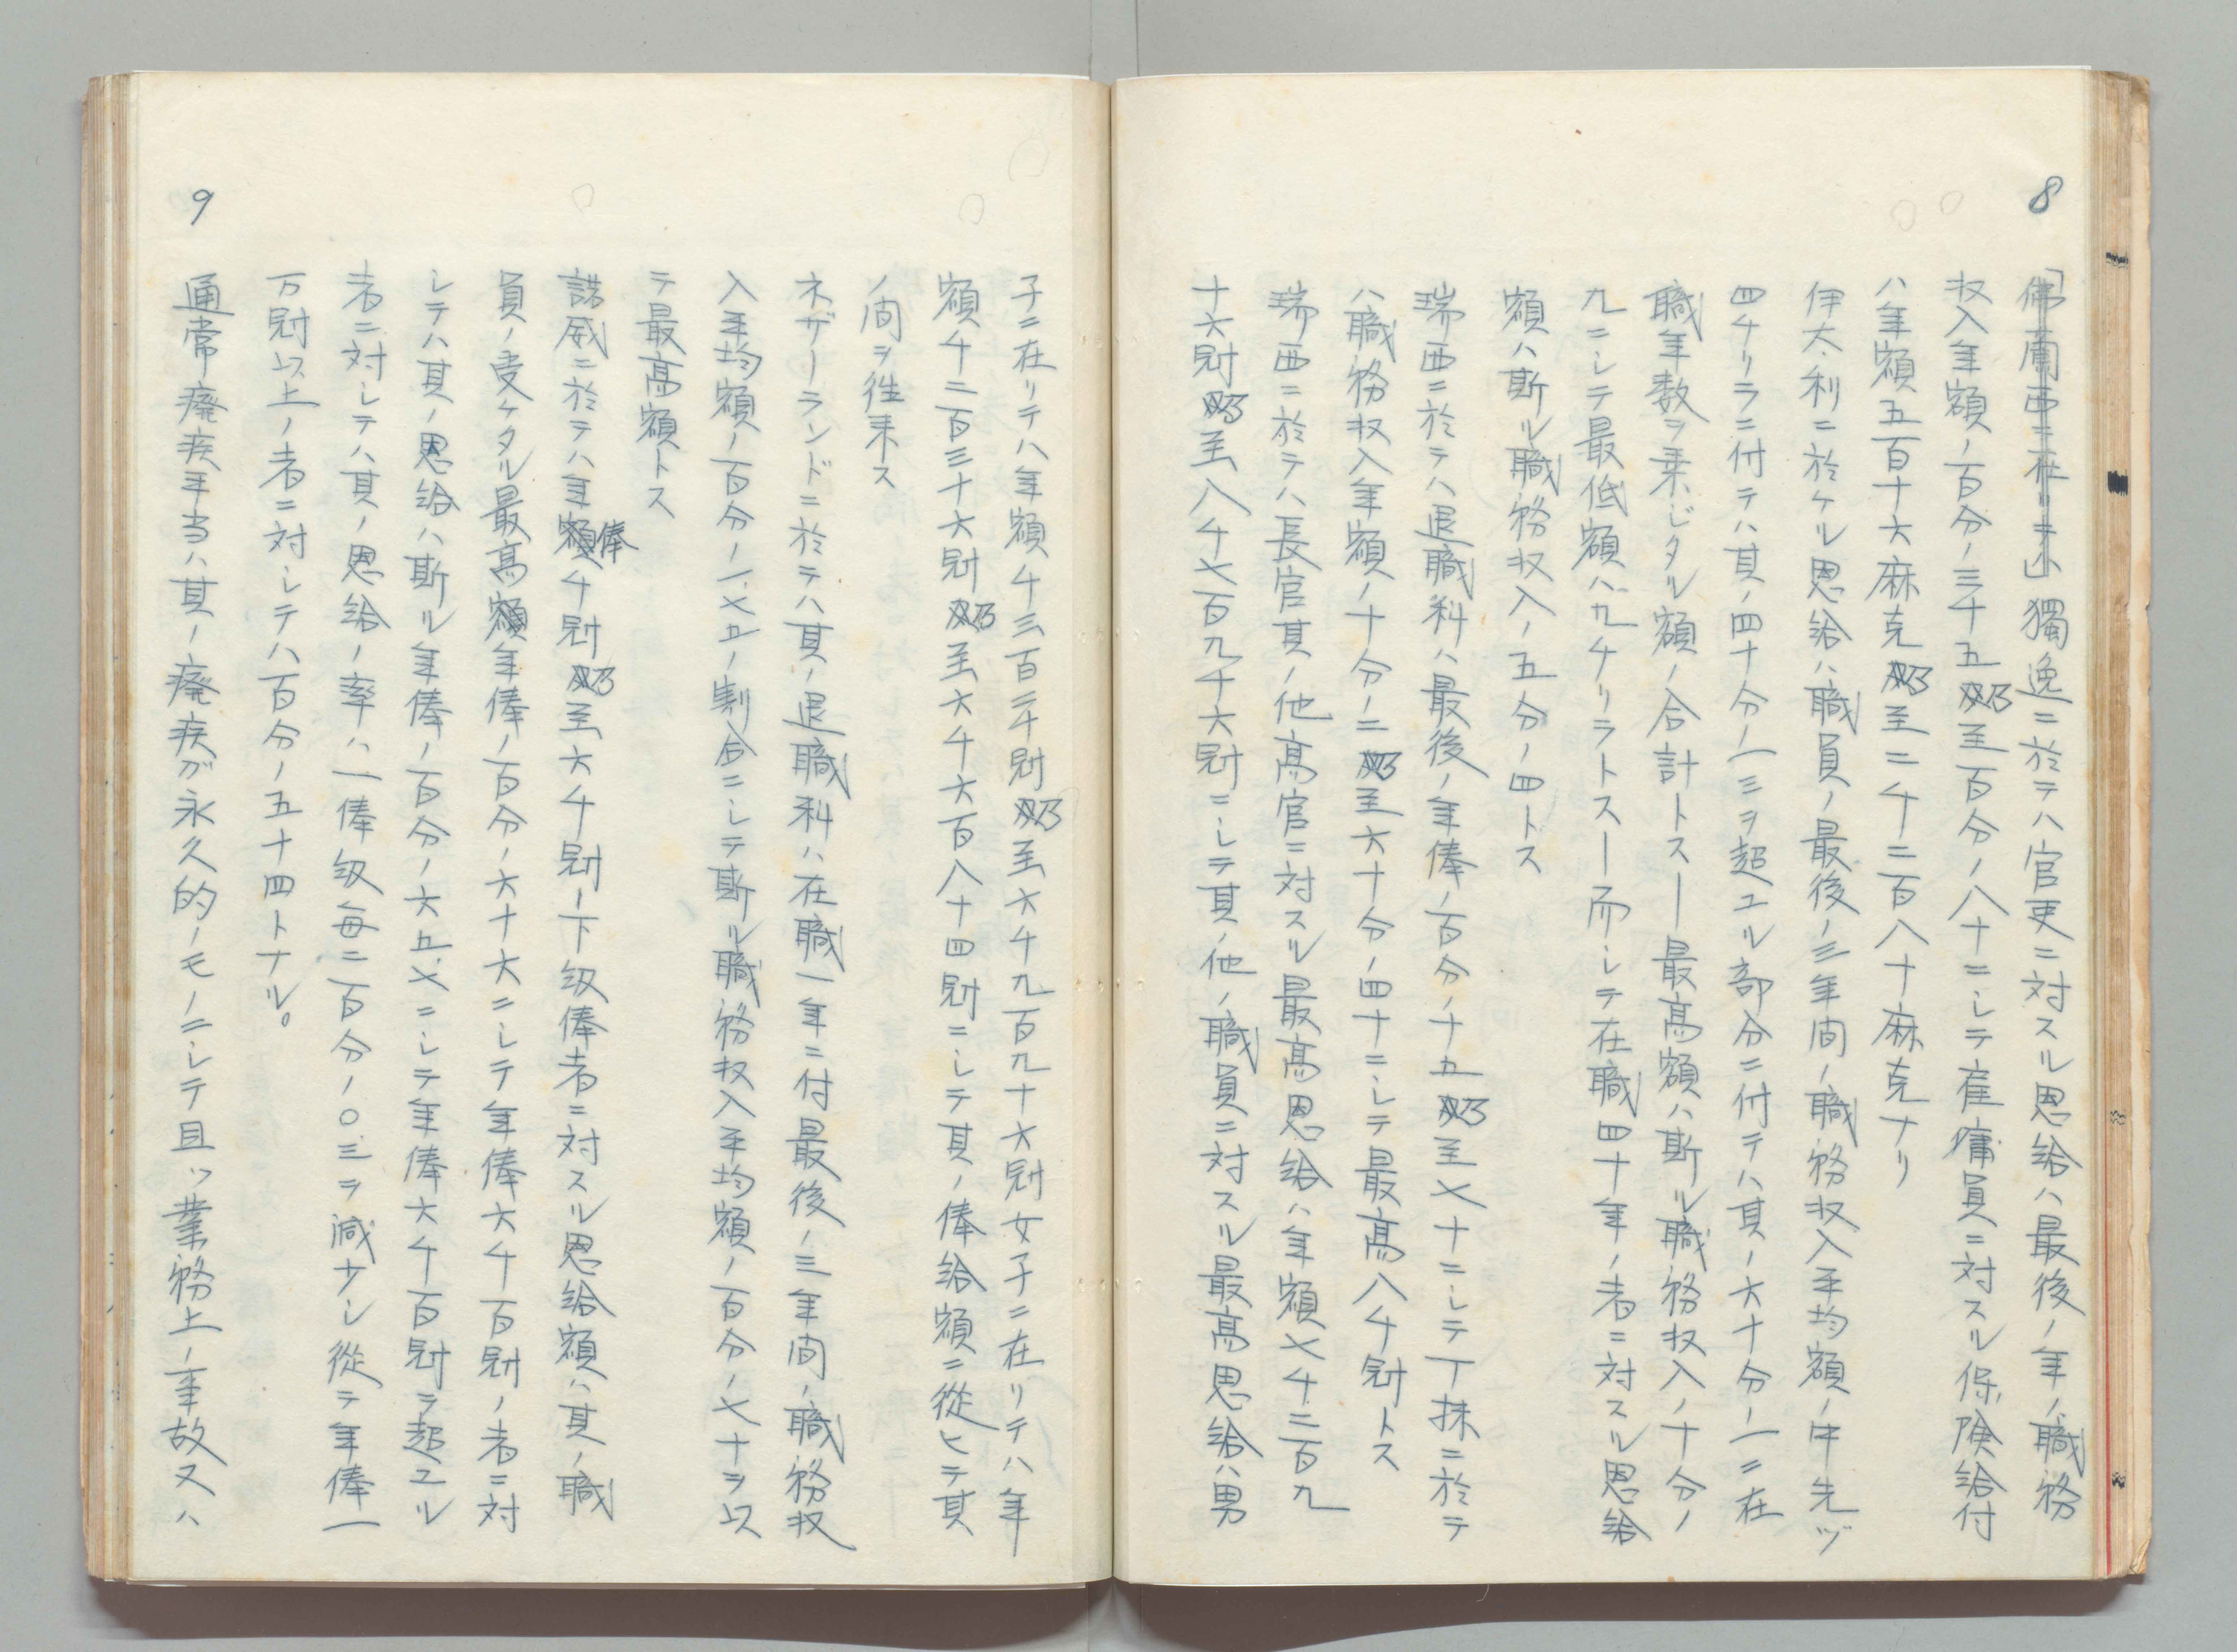 8
「佛蘭西ニ在リキ」獨逸ニ於テハ官吏ニ対スル恩給ハ最後ノ年ノ職務
収入年額ノ百分ノ三十五乃至百分ノ八十ニシテ雇傭員ニ対スル保険給付
ハ年額五百十六麻克乃至二千二百八十麻克ナリ
伊太利ニ於ケル恩給ハ職員ノ最後ノ三年間ノ職務収入平均額ノ中先ヅ
四千リラニ付テハ其ノ四十分ノ一ヲ超ユル部分ニ付テハ其ノ六十分ノ一ニ在
職年数ヲ乗ジタル額ノ合計トス—最高額ハ斯ル職務収入ノ十分ノ
九ニシテ最低額ハ九千リラトス—而シテ在職四十年ノ者ニ対スル恩給
額ハ斯ル職務収入ノ五分ノ四トス
瑞西ニ於テハ退職料ハ最後ノ年俸ノ百分ノ十五乃至七十ニシテ丁抹ニ於テ
ハ職務収入年額ノ十分ノ二乃至六十分ノ四十ニシテ最高八千尅トス
瑞西ニ於テハ長官其ノ他高官ニ対スル最高恩給ハ年額七千二百九
十六尅乃至八千七百九十六尅ニシテ其ノ他ノ職員ニ対スル最高恩給ハ男
子ニ在リテハ年額千三百二十尅乃至六千九百九十六尅女子ニ在リテハ年
額千二百三十六尅乃至六千六百八十四尅ニシテ其ノ俸給額ニ従ヒテ其
ノ間ヲ往来ス
ネザーランドニ於テハ其ノ退職料ハ在職一年ニ付最後ノ三年間ノ職務収
入平均額ノ百分ノ一.七五ノ割合ニシテ斯ル職務収入平均額ノ百分ノ七十ヲ以
テ最高額トス
諾威ニ於テハ年俸千尅乃至六千尅ノ下級俸者ニ対スル恩給額ハ其ノ職
員ノ受ケタル最高年俸ノ百分ノ六十六ニシテ年俸六千百尅ノ者ニ対
シテハ其ノ恩給ハ斯ル年俸ノ百分ノ六五.七ニシテ年俸六千百尅ヲ超ユル
者ニ対シテハ其ノ恩給ノ率ハ一俸級毎ニ百分ノ〇.三ヲ減少シ從テ年俸一
万尅以上ノ者ニ対シテハ百分ノ五十四トナル。
9
通常癈疾年当ハ其ノ癈疾ガ永久的ノモノニシテ且ツ業務上ノ事故又ハ